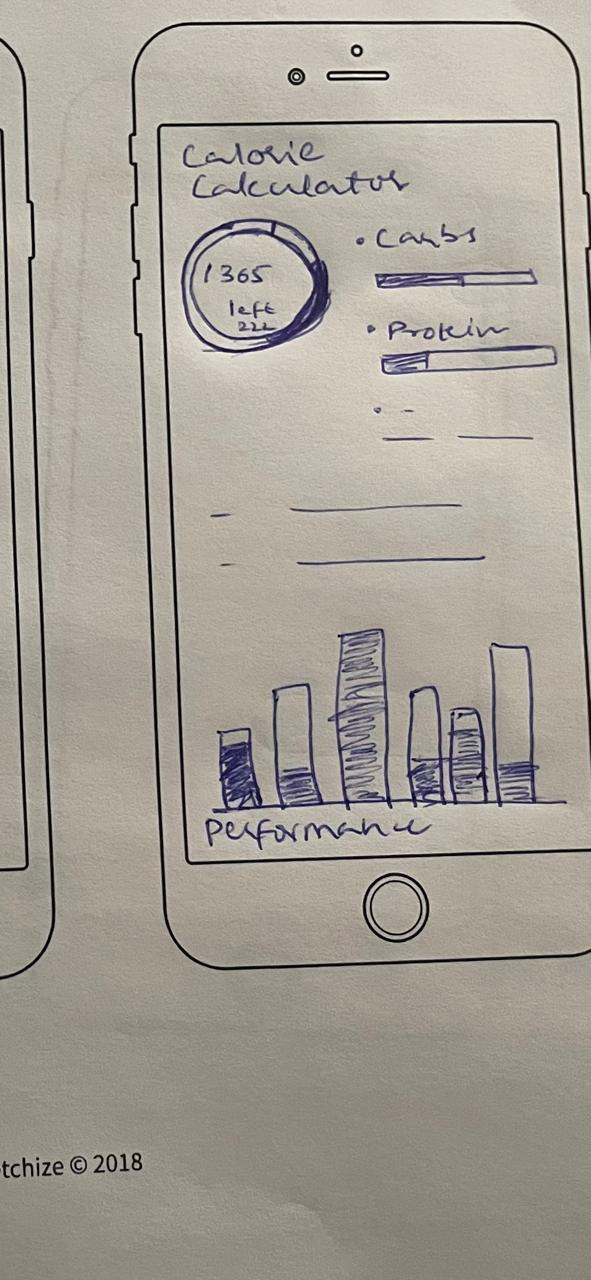 Calorie
Calculator
1365
left
222
• Carbs
• Protein
Performance
tchize © 2018